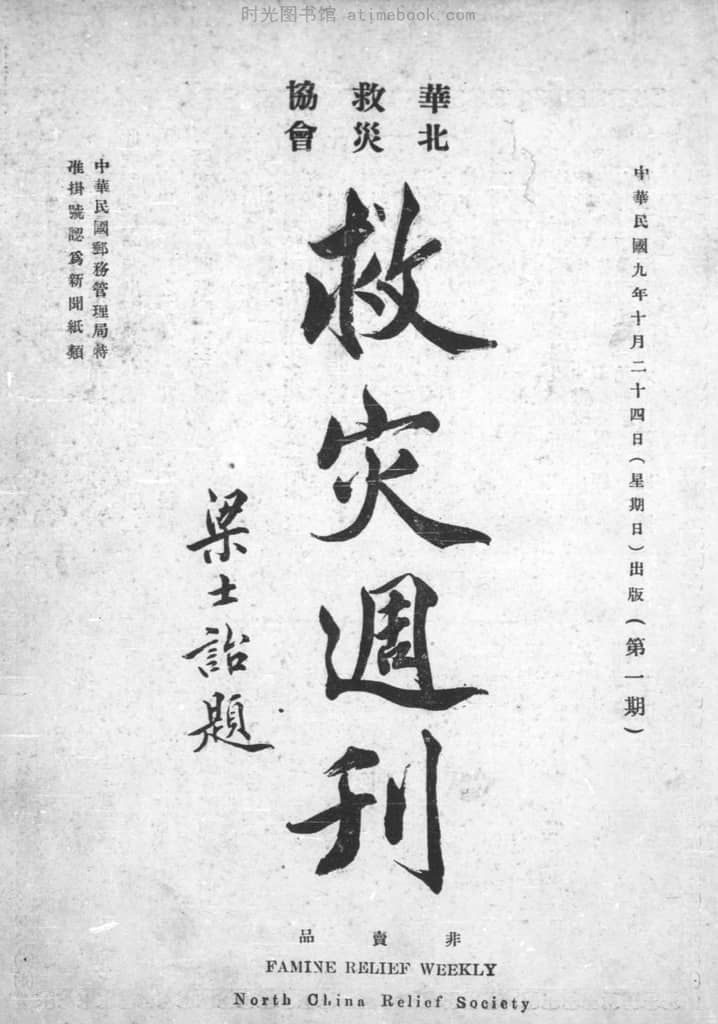 时光图书馆 atimebook.com
華北
救災
協會
中華民國九年十月二十四日(星期日)出版(第一期)
救灾週刊
梁士詒題
中華民國郵務管理局特
准掛號認爲新聞紙類
非賣品
FAMINE RELIEF WEEKLY
North China Relief Society